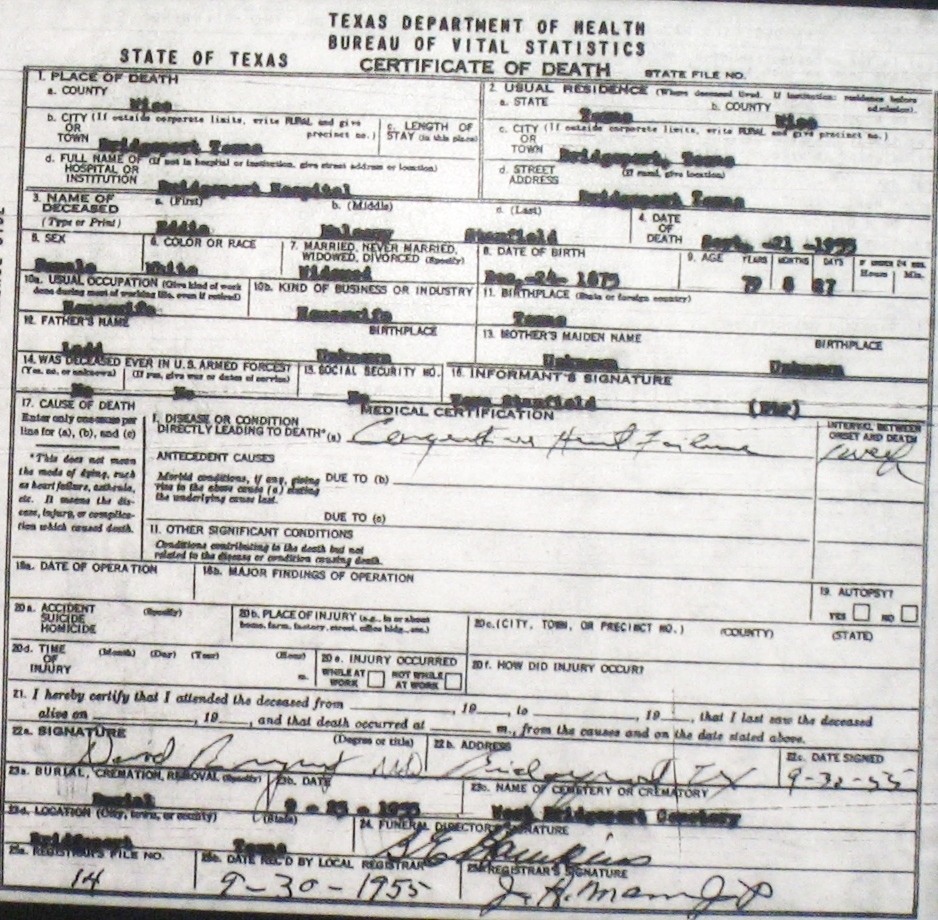 TEXAS DEPARTMENT OF HEALTH
BUREAU OF VITAL STATISTICS
STATE OF TEXAS CERTIFICATE OF DEATH STATE FILE NO.
1. PLACE OF DEATH
a. COUNTY
Wise
2. USUAL RESIDENCE (Where deceased lived. If institution: residence before admission).
a. STATE b. COUNTY
Texas Wise
b. CITY (If outside corporate limits, write RURAL and give precinct no.)
OR
TOWN Bridgeport Texas
c. LENGTH OF
STAY (in this place)
c. CITY (If outside corporate limits, write RURAL and give precinct no.)
OR
TOWN Bridgeport, Texas
d. FULL NAME OF (If not in hospital or institution, give street address or location)
HOSPITAL OR
INSTITUTION Bridgeport Hospital
d. STREET (If rural, give location)
ADDRESS Bridgeport Texas
3. NAME OF DECEASED a. (First) b. (Middle) c. (Last)
(Type or Print) Eddie Stanfield
4. DATE
OF
DEATH Sept, -21 -1955
5. SEX
Female
6. COLOR OR RACE
White
7. MARRIED, NEVER MARRIED,
WIDOWED, DIVORCED (Specify)
Widowed
8. DATE OF BIRTH
Dec,-24- 1875
9. AGE YEARS MONTHS DAYS IF UNDER 24 HRS.
Hours Min.
79 8 27
10a. USUAL OCCUPATION (Give kind of work
done during most of working life, even if retired)
Housewife
10b. KIND OF BUSINESS OR INDUSTRY
Housewife
11. BIRTHPLACE (State or foreign country)
Texas
12. FATHER'S NAME BIRTHPLACE
Ladd Unknown
13. MOTHER'S MAIDEN NAME BIRTHPLACE
Unknown Unknown
14. WAS DECEASED EVER IN U.S. ARMED FORCES?
(Yes, no, or unknown) (If yes, give war or dates of service)
No No
15. SOCIAL SECURITY NO.
No
16. INFORMANT'S SIGNATURE
Stanfield
17. CAUSE OF DEATH
Enter only one cause per
line for (a), (b), and (c)
*This does not mean
the mode of dying, such
as heart failure, asthenia,
etc. It means the dis-
ease, injury, or complica-
tion which caused death.
MEDICAL CERTIFICATION
I. DISEASE OR CONDITION
DIRECTLY LEADING TO DEATH* (a) Congestive Heart Failure
INTERVAL BETWEEN
ONSET AND DEATH
ANTECEDENT CAUSES
Morbid conditions, if any, giving
rise to the above cause (a) stating
the underlying cause last.
DUE TO (b)
DUE TO (c)
11. OTHER SIGNIFICANT CONDITIONS
Conditions contributing to the death but not
related to the disease or condition causing death.
18a. DATE OF OPERATION
18b. MAJOR FINDINGS OF OPERATION
19. AUTOPSY?
YES NO
20a. ACCIDENT (Specify)
SUICIDE
HOMICIDE
20b. PLACE OF INJURY (e.g., in or about
home, farm, factory, street, office bldg., etc.)
20c. (CITY, TOWN, OR PRECINCT NO.) (COUNTY) (STATE)
20d. TIME (Month) (Day) (Year) (Hour)
OF
INJURY m.
20e. INJURY OCCURRED
WHILE AT WORK NOT WHILE AT WORK
20f. HOW DID INJURY OCCUR?
21. I hereby certify that I attended the deceased from , 19 , to , 19 , that I last saw the deceased
alive on , 19 , and that death occurred at m., from the causes and on the date stated above.
22a. SIGNATURE (Degree or title)
David MD
22b. ADDRESS
Bridgeport TX
22c. DATE SIGNED
9-30-55
23a. BURIAL, CREMATION, REMOVAL (Specify)
Burial
23b. DATE
9 - 23 - 1955
23c. NAME OF CEMETERY OR CREMATORY
West Bridgeport Cemetery
23d. LOCATION (City, town, or county) (State)
Bridgeport Texas
24. FUNERAL DIRECTOR'S SIGNATURE
Hawkins
25a. REGISTRAR'S FILE NO.
14
25b. DATE REC'D BY LOCAL REGISTRAR
9-30-1955
REGISTRAR'S SIGNATURE